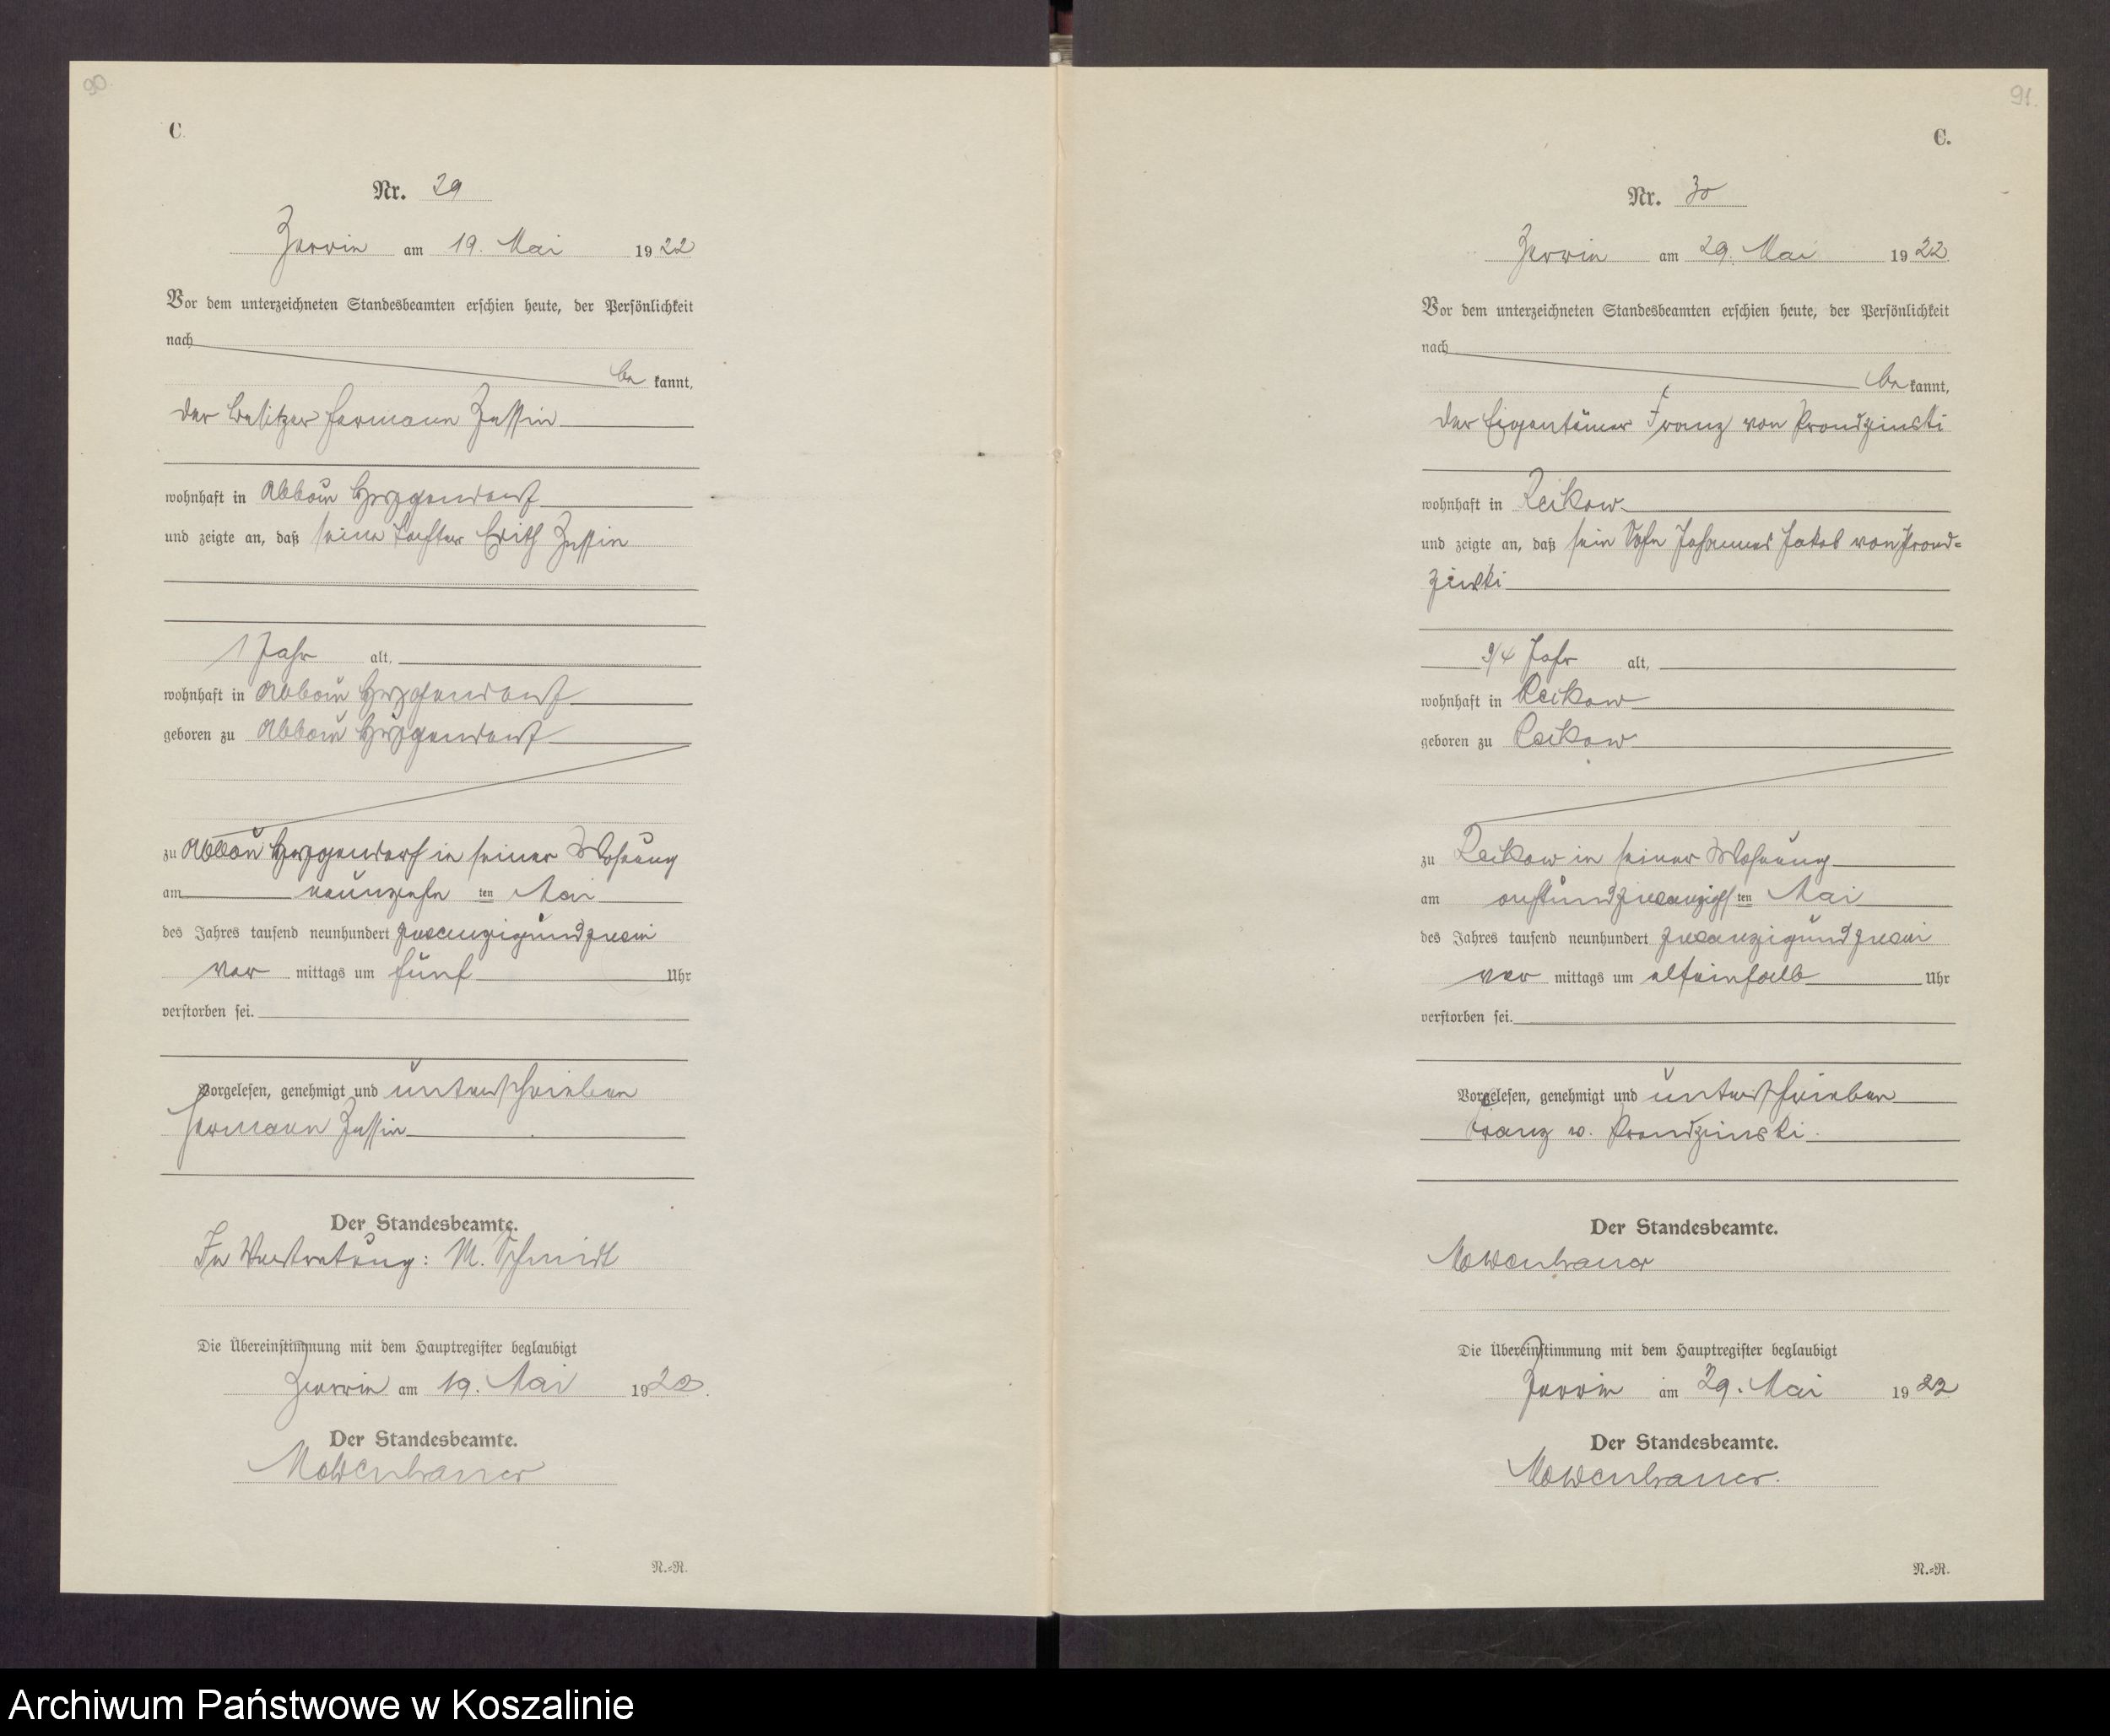 90.
C.
Nr. 29
am 19. Mai 1922
Vor dem unterzeichneten Standesbeamten erschien heute, der Persönlichkeit
nach
be kannt,
der Besitzer Hermann
wohnhaft in Abbau
und zeigte an, daß seine Tochter Edith
1 Jahr alt,
wohnhaft in Abbau
geboren zu Abbau
zu Abbau in seiner Wohnung
am neunzehn ten Mai
des Jahres tausend neunhundert zwanzigundzwei
vor mittags um fünf Uhr
verstorben sei.
Vorgelesen, genehmigt und unterschrieben
Hermann
Der Standesbeamte.
In Vertretung: M. Schmidt
Die Übereinstimmung mit dem Hauptregister beglaubigt
am 19. Mai 1922.
Der Standesbeamte.
N.=R.
91.
C.
Nr. 30
am 29. Mai 1922.
Vor dem unterzeichneten Standesbeamten erschien heute, der Persönlichkeit
nach
be kannt,
der Eigentümer Franz von Prondzinski
wohnhaft in Reikow
und zeigte an, daß sein Sohn Johannes Jakob von Prond=
zinski
3/4 Jahr alt,
wohnhaft in Reikow
geboren zu Reikow
zu Reikow in seiner Wohnung
am achtundzwanzigsten Mai
des Jahres tausend neunhundert zwanzigundzwei
vor mittags um elfeinhalb Uhr
verstorben sei.
Vorgelesen, genehmigt und unterschrieben
Franz v. Prondzinski.
Der Standesbeamte.
Die Übereinstimmung mit dem Hauptregister beglaubigt
am 29. Mai 1922
Der Standesbeamte.
N.=R.
Archiwum Państwowe w Koszalinie